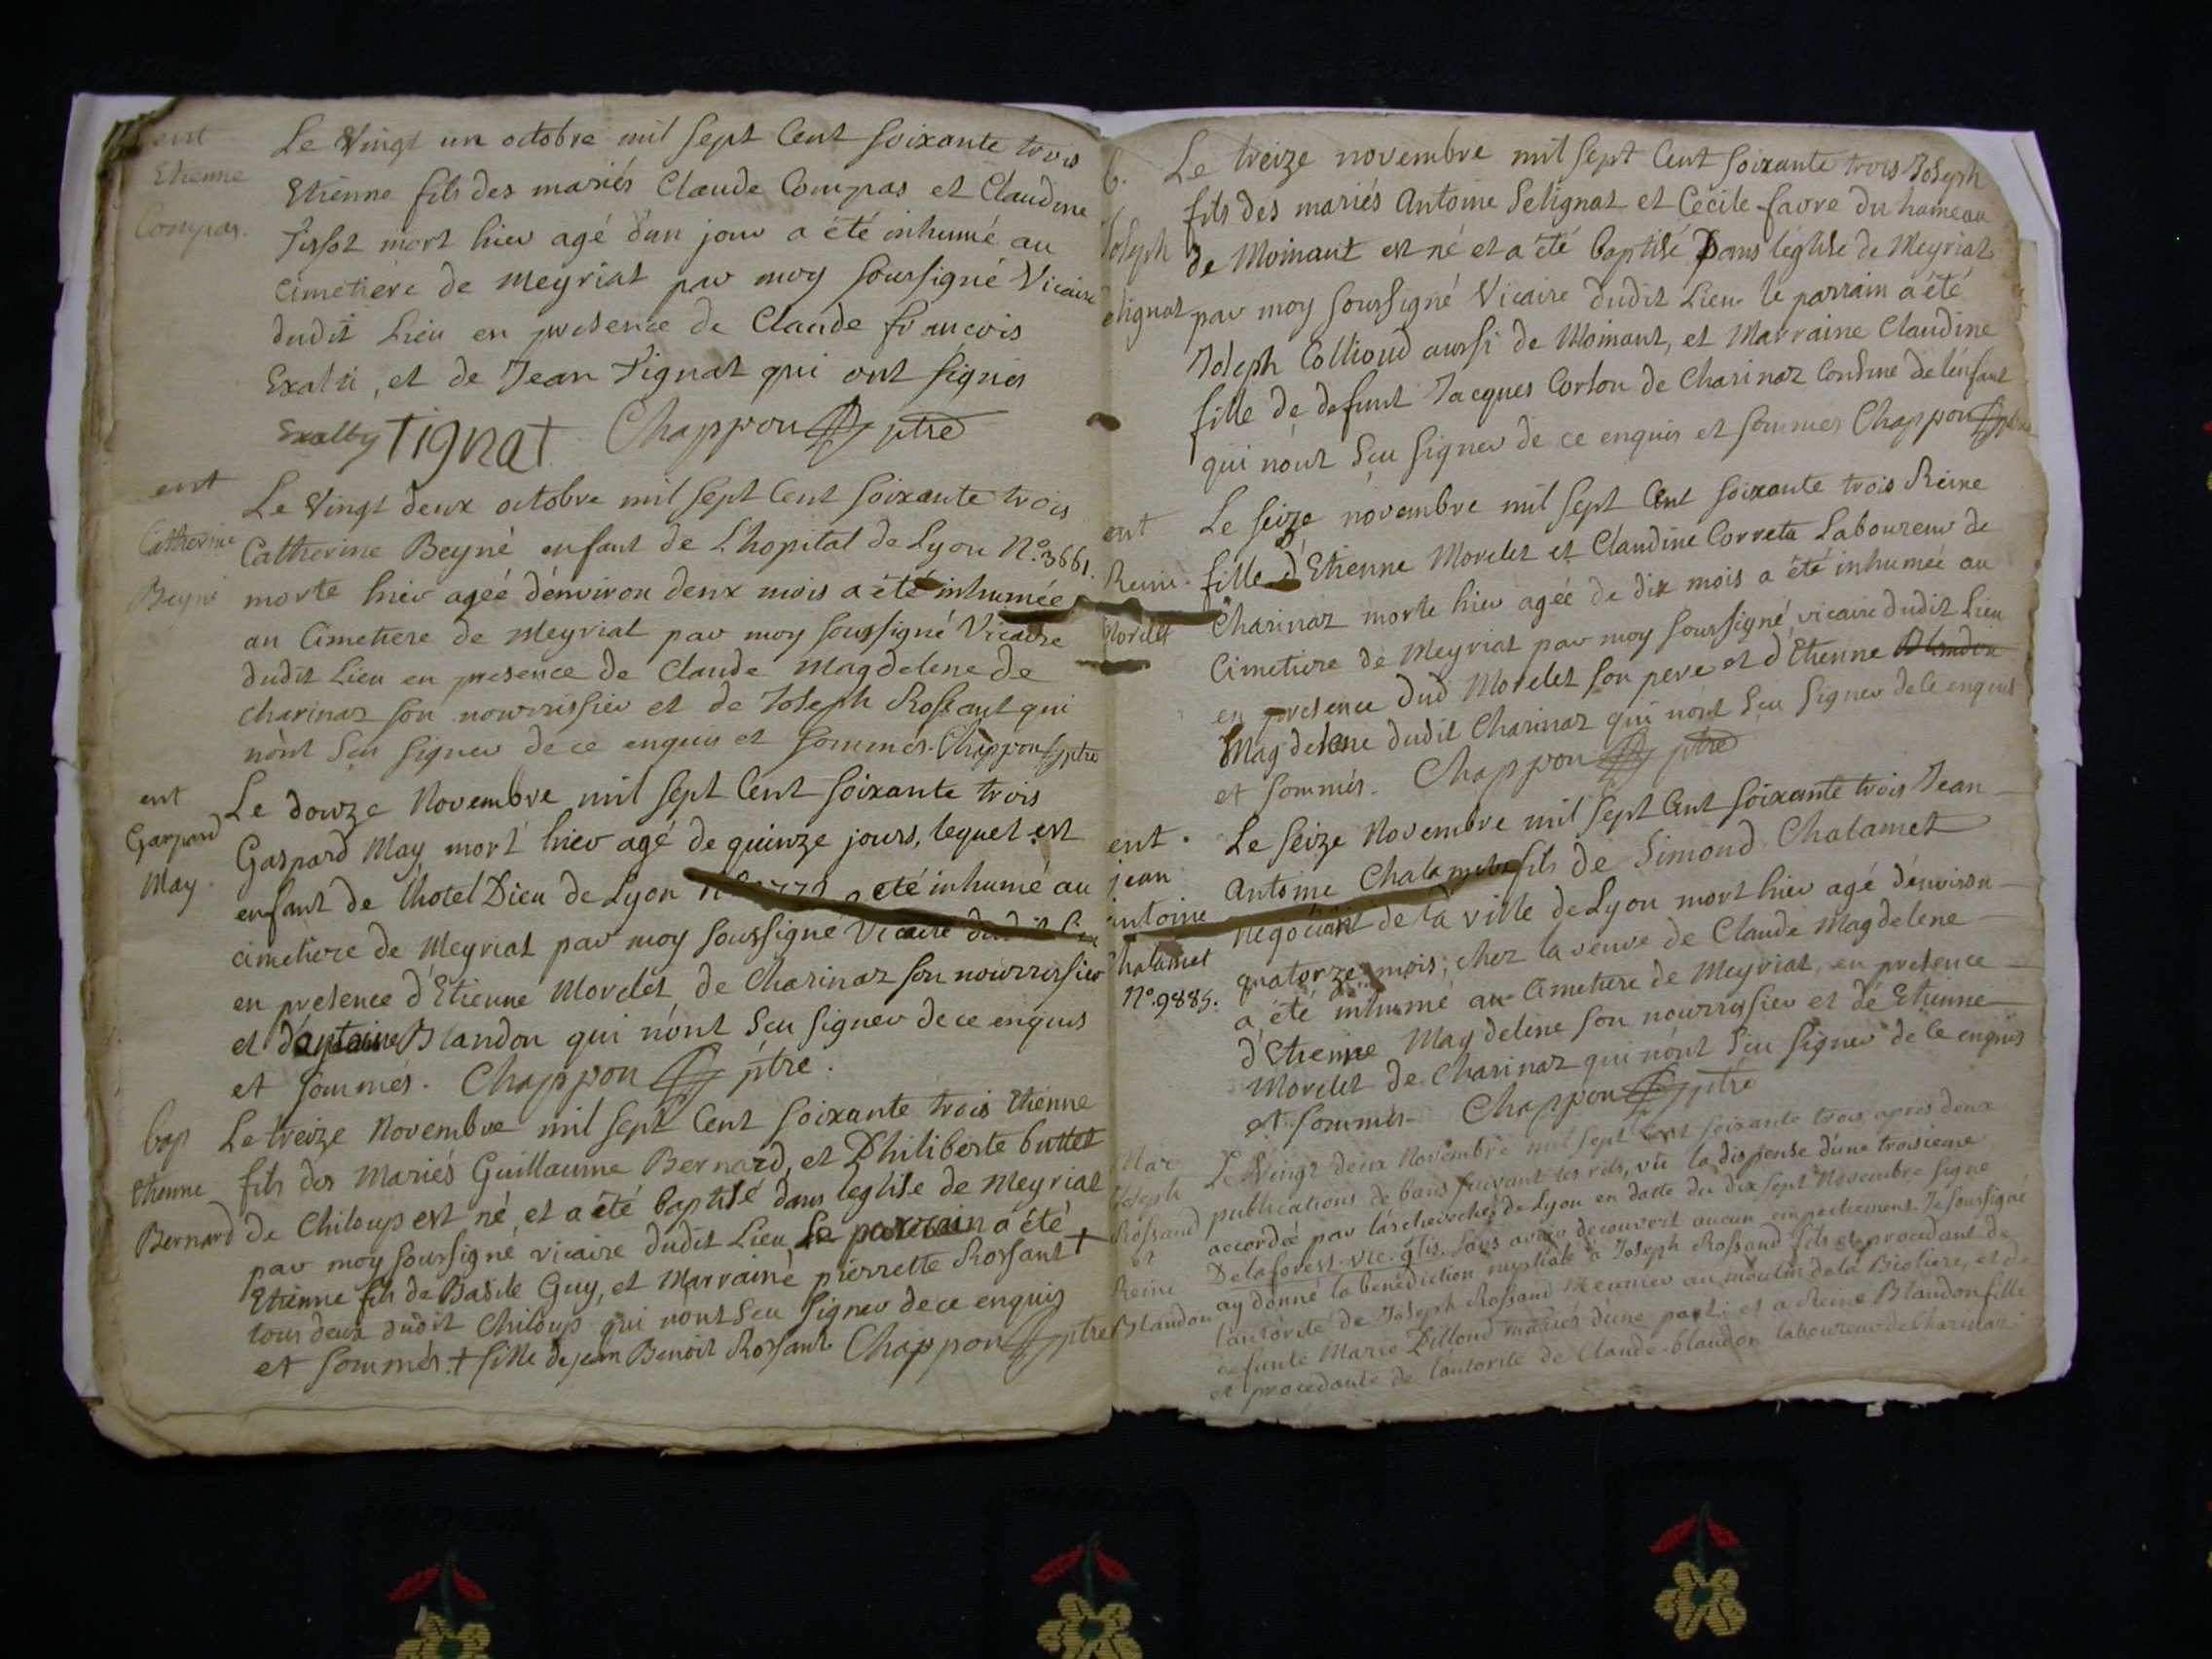 ent
Etienne
Compas.
Le Vingt un octobre mil sept Cent soixante trois
Etienne fils des mariés Claude Compas et Claudine
mort hier agé d'un jour a été inhumé au
Cimetiere de Meyriat par moy soussigné Vicaire
dudit Lieu en presence de Claude francois
Exalti, et de Jean Tignat qui ont signés
Exalty Tignat Chappon ptre
ent
Catherine
Beyné
Le Vingt deux octobre mil sept Cent soixante trois
Catherine Beyné enfant de L'hopital de Lyon N°. 3661.
morte hier agée d'environ deux mois a été inhumée
au Cimetiere de Meyriat par moy soussigné Vicaire
dudit Lieu en presence de Claude Magdelene de
Charinaz son nourrissier et de Joseph Rossant qui
n'ont sçu signer de ce enquis et sommés. Chappon ptre
ent
Gaspard
May.
Le douze Novembre mil sept Cent soixante trois
Gaspard May mort hier agé de quinze jours, lequel est
enfant de l'hotel Dieu de Lyon a eté inhumé au
cimetiere de Meyriat par moy soussigné Vicaire dudit Lieu
en presence d'Etienne Morelet de Charinaz son nourrissier
et d'antoine Blandon qui n'ont sçu signer de ce enquis
et sommés. Chappon ptre.
bap
Etienne
Bernard
Le treize Novembre mil sept Cent soixante trois Etienne
fils des Mariés Guillaume Bernard, et Philiberte buttet
de Chiloup est né, et a été baptisé dans l'eglise de Meyriat
par moy soussigné vicaire dudit Lieu, Le parrain a été
Etienne fils de Basile Guy, et Marraine pierrette Rossant +
tous deux dudit Chiloup qui n'ont sçu signer de ce enquis
et sommés. + fille de jean Benoit Rossant Chappon ptre
b.
Joseph
elignat
Le treize novembre mil sept Cent soixante trois Joseph
fils des mariés Antoine Selignat et Cécile favre du hameau
de Moinant est né et a été baptisé Dans l'église de Meyriat
par moy soussigné Vicaire dudit Lieu le parrain a été
Joseph Collioud aussi de Moinant, et Marraine Claudine
fille de defunt Jacques Corton de Charinaz Cousine de l'enfant
qui n'ont sçu signer de ce enquis et sommés Chappon ptre
ent
Reine
Morelet
Le seize novembre mil sept Cent soixante trois Reine
fille d'Etienne Morelet et Claudine Correta Laboureur de
Charinaz morte hier agée de dix mois a été inhumée au
Cimetiere de Meyriat par moy soussigné, vicaire dudit Lieu
en presence dud Morelet son pere et d'Etienne Blandon
Magdelene dudit Charinaz qui n'ont sçu signer de ce enquis
et sommés. Chappon ptre
ent.
jean
antoine
halamet
N°. 9885.
Le seize Novembre mil sept Cent soixante trois Jean
antoine Chalamet fils de Simond Chalamet
négociant de la ville de Lyon mort hier agé d'environ
quatorze mois, chez la veuve de Claude Magdelene
a été inhumé au Cimetiere de Meyriat, en presence
d'Etienne Magdelene son nourrissier et de Etienne
Morelet de Charinaz qui n'ont sçu signer de ce enquis
et sommés. Chappon ptre
Mar
Joseph
Rossand
et
Reine
Blandon
Le Vingt deux Novembre mil sept Cent soixante trois apres deux
publications de bans suivant les rits, vû la dispense d'une troisieme
accordée par l'archeveché de Lyon en datte du dix sept Novembre signé
Delaforest vic. glis. sans avoir decouvert aucun empechement Je soussigné
ay donné la benédiction nuptiale a Joseph Rossand fils et procedant de
l'autorité de Joseph Rossand Meunier au moulin de la Bioliere, et de
defunte Marie Pillond mariés d'une part; et a Reine Blandon fille
et procedante de l'autorité de Claude blandon laboureur de Charinaz